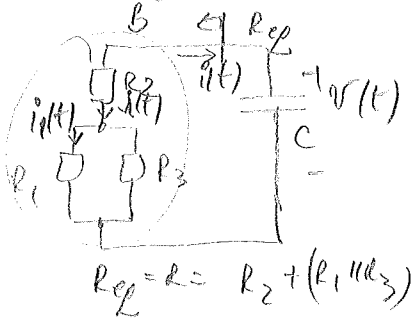 B
Req
i(t)
R2
i(t)
+
v(t)
i1(t)
C
R1
R3
-
Req = R = R2 + (R1 || R3)